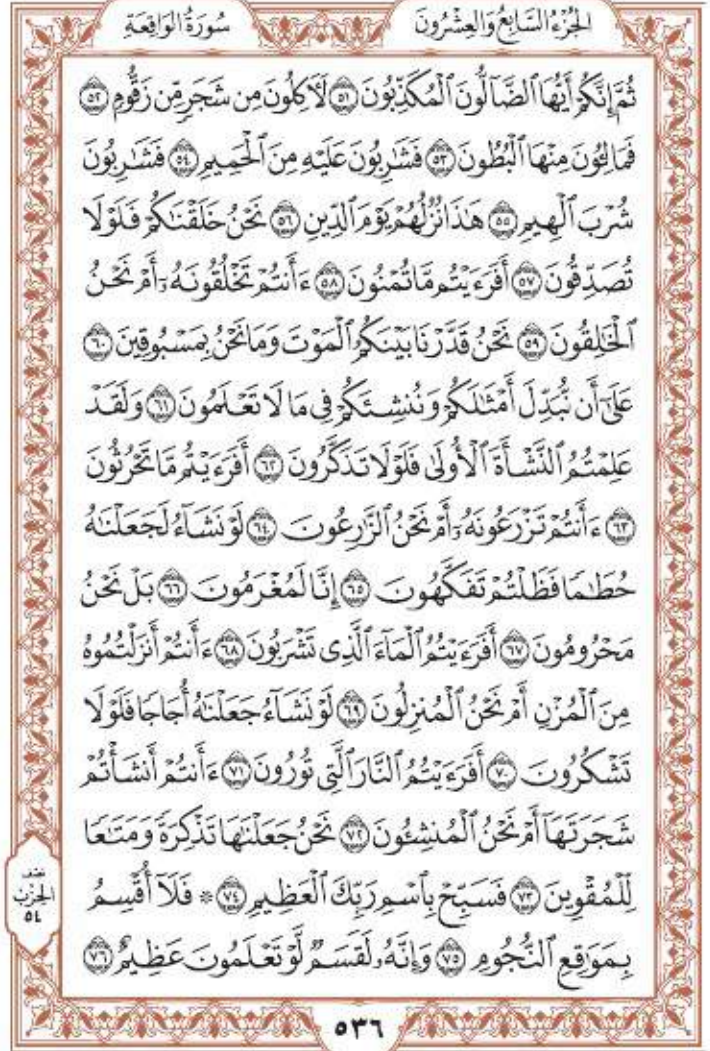 الجُزْءُ السَّابِعُ وَالعِشْرُونَ
سُورَةُ الوَاقِعَةِ
ثُمَّ إِنَّكُمْ أَيُّهَا ٱلضَّآلُّونَ ٱلْمُكَذِّبُونَ ٥١ لَأَكِلُونَ مِن شَجَرٍ مِّن زَقُّومٍ ٥٢
فَمَالِـُٔونَ مِنْهَا ٱلْبُطُونَ ٥٣ فَشَـٰرِبُونَ عَلَيْهِ مِنَ ٱلْحَمِيمِ ٥٤ فَشَـٰرِبُونَ
شُرْبَ ٱلْهِيمِ ٥٥ هَـٰذَا نُزُلُهُمْ يَوْمَ ٱلدِّينِ ٥٦ نَحْنُ خَلَقْنَـٰكُمْ فَلَوْلَا
تُصَدِّقُونَ ٥٧ أَفَرَءَيْتُم مَّا تُمْنُونَ ٥٨ ءَأَنتُمْ تَخْلُقُونَهُۥٓ أَمْ نَحْنُ
ٱلْخَـٰلِقُونَ ٥٩ نَحْنُ قَدَّرْنَا بَيْنَكُمُ ٱلْمَوْتَ وَمَا نَحْنُ بِمَسْبُوقِينَ ٦٠
عَلَىٰٓ أَن نُّبَدِّلَ أَمْثَـٰلَكُمْ وَنُنشِئَكُمْ فِى مَا لَا تَعْلَمُونَ ٦١ وَلَقَدْ
عَلِمْتُمُ ٱلنَّشْأَةَ ٱلْأُولَىٰ فَلَوْلَا تَذَكَّرُونَ ٦٢ أَفَرَءَيْتُم مَّا تَحْرُثُونَ
٦٣ ءَأَنتُمْ تَزْرَعُونَهُۥٓ أَمْ نَحْنُ ٱلزَّٰرِعُونَ ٦٤ لَوْ نَشَآءُ لَجَعَلْنَـٰهُ
حُطَـٰمًا فَظَلْتُمْ تَفَكَّهُونَ ٦٥ إِنَّا لَمُغْرَمُونَ ٦٦ بَلْ نَحْنُ
مَحْرُومُونَ ٦٧ أَفَرَءَيْتُمُ ٱلْمَآءَ ٱلَّذِى تَشْرَبُونَ ٦٨ ءَأَنتُمْ أَنزَلْتُمُوهُ
مِنَ ٱلْمُزْنِ أَمْ نَحْنُ ٱلْمُنزِلُونَ ٦٩ لَوْ نَشَآءُ جَعَلْنَـٰهُ أُجَاجًا فَلَوْلَا
تَشْكُرُونَ ٧٠ أَفَرَءَيْتُمُ ٱلنَّارَ ٱلَّتِى تُورُونَ ٧١ ءَأَنتُمْ أَنشَأْتُمْ
شَجَرَتَهَآ أَمْ نَحْنُ ٱلْمُنشِـُٔونَ ٧٢ نَحْنُ جَعَلْنَـٰهَا تَذْكِرَةً وَمَتَـٰعًا
لِّلْمُقْوِينَ ٧٣ فَسَبِّحْ بِٱسْمِ رَبِّكَ ٱلْعَظِيمِ ٧٤ ۞ فَلَآ أُقْسِمُ
بِمَوَٰقِعِ ٱلنُّجُومِ ٧٥ وَإِنَّهُۥ لَقَسَمٌ لَّوْ تَعْلَمُونَ عَظِيمٌ ٧٦
الحِزْبِ
٥٤
٥٣٦